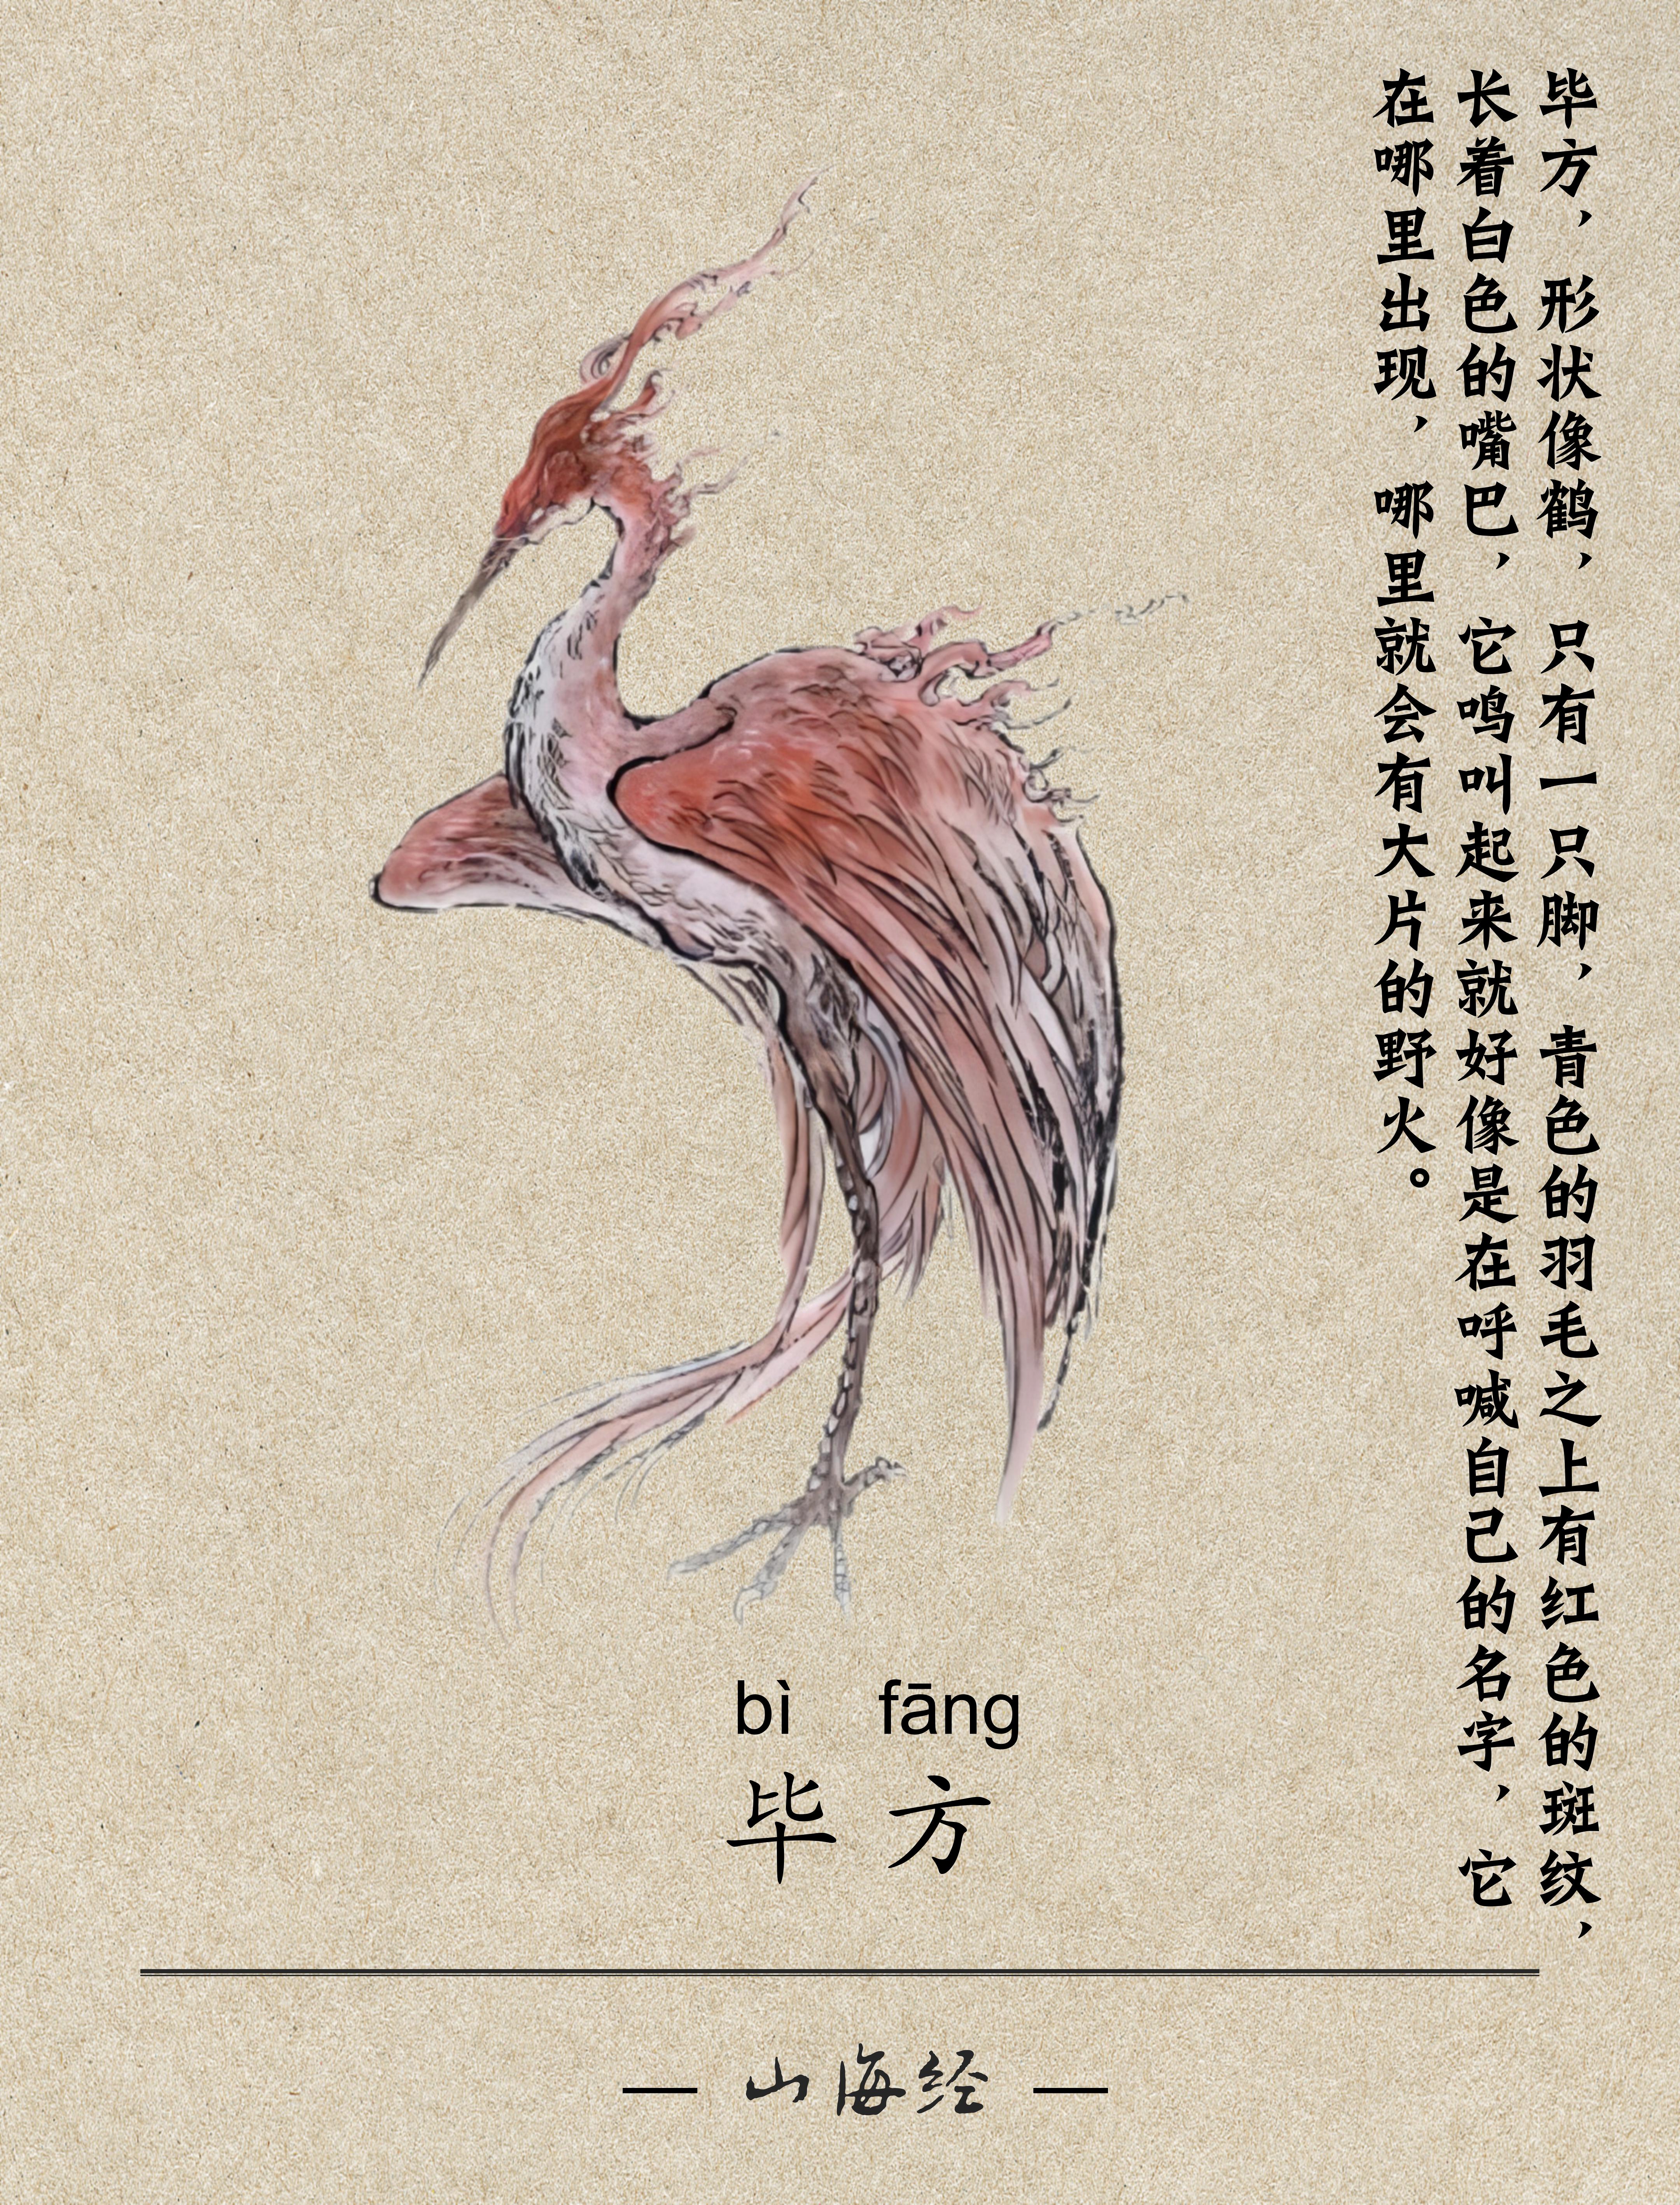 毕方，形状像鹤，只有一只脚，青色的羽毛之上有红色的斑纹，
长着白色的嘴巴，它鸣叫起来就好像是在呼喊自己的名字，它
在哪里出现，哪里就会有大片的野火。
bì fāng
毕方
— 山海经 —